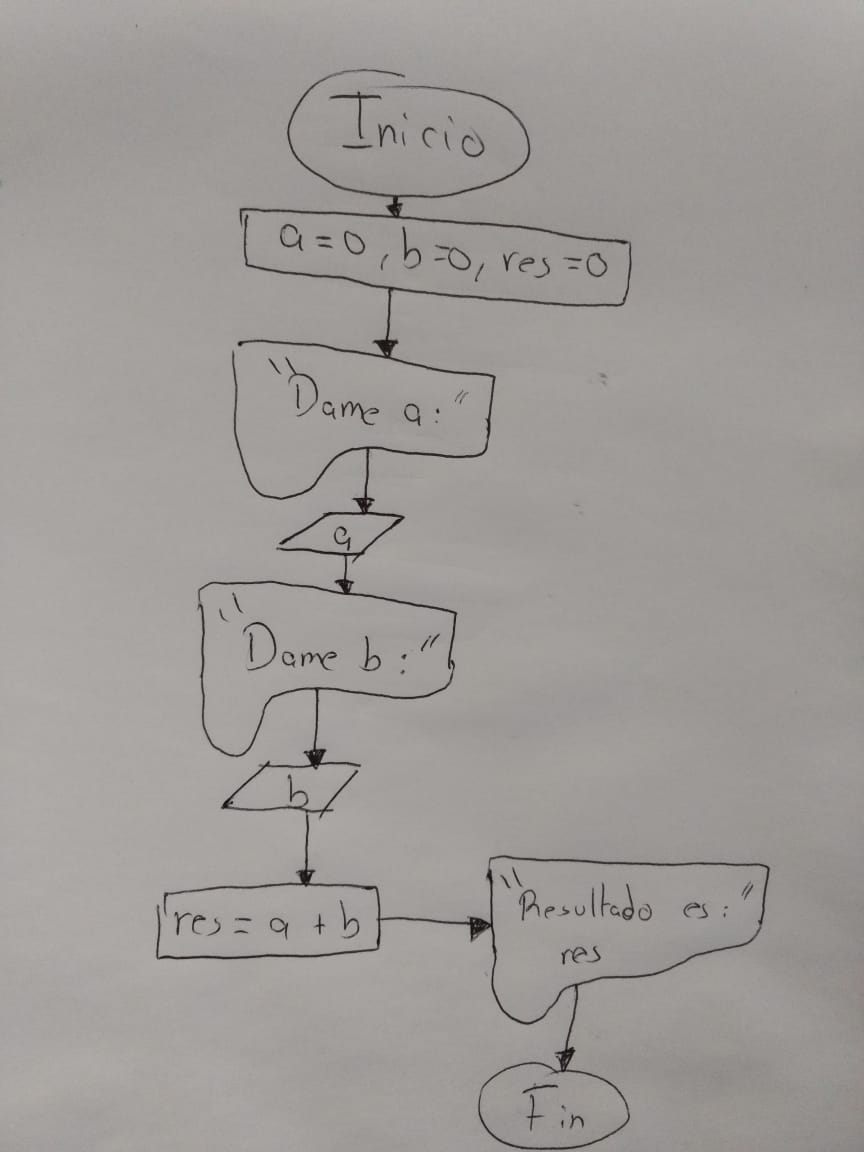 Inicio
a=0, b=0, res=0
"Dame a:"
a
"Dame b:"
b
res = a + b
"Resultado es:"
res
Fin